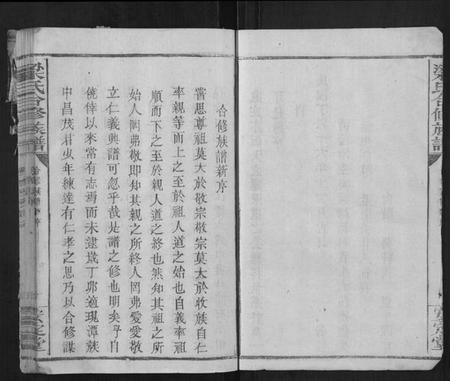 梁氏合修族譜
合修族譜新序
嘗思尊祖莫大於敬宗敬宗莫大於收族自仁
率親等而上之至於祖人道之始也自義率祖
順而下之至於親人道之終也然知其祖之所
始人罔弗敬即知其親之所終人罔弗愛愛敬
立仁義興譜可忽乎哉是譜之修也明矣予自
侥倖以來常有志焉而未逮歲丁邜適現潭族
中昌茂君虫年練達有仁孝之思乃以合修謀
梁氏合修族譜